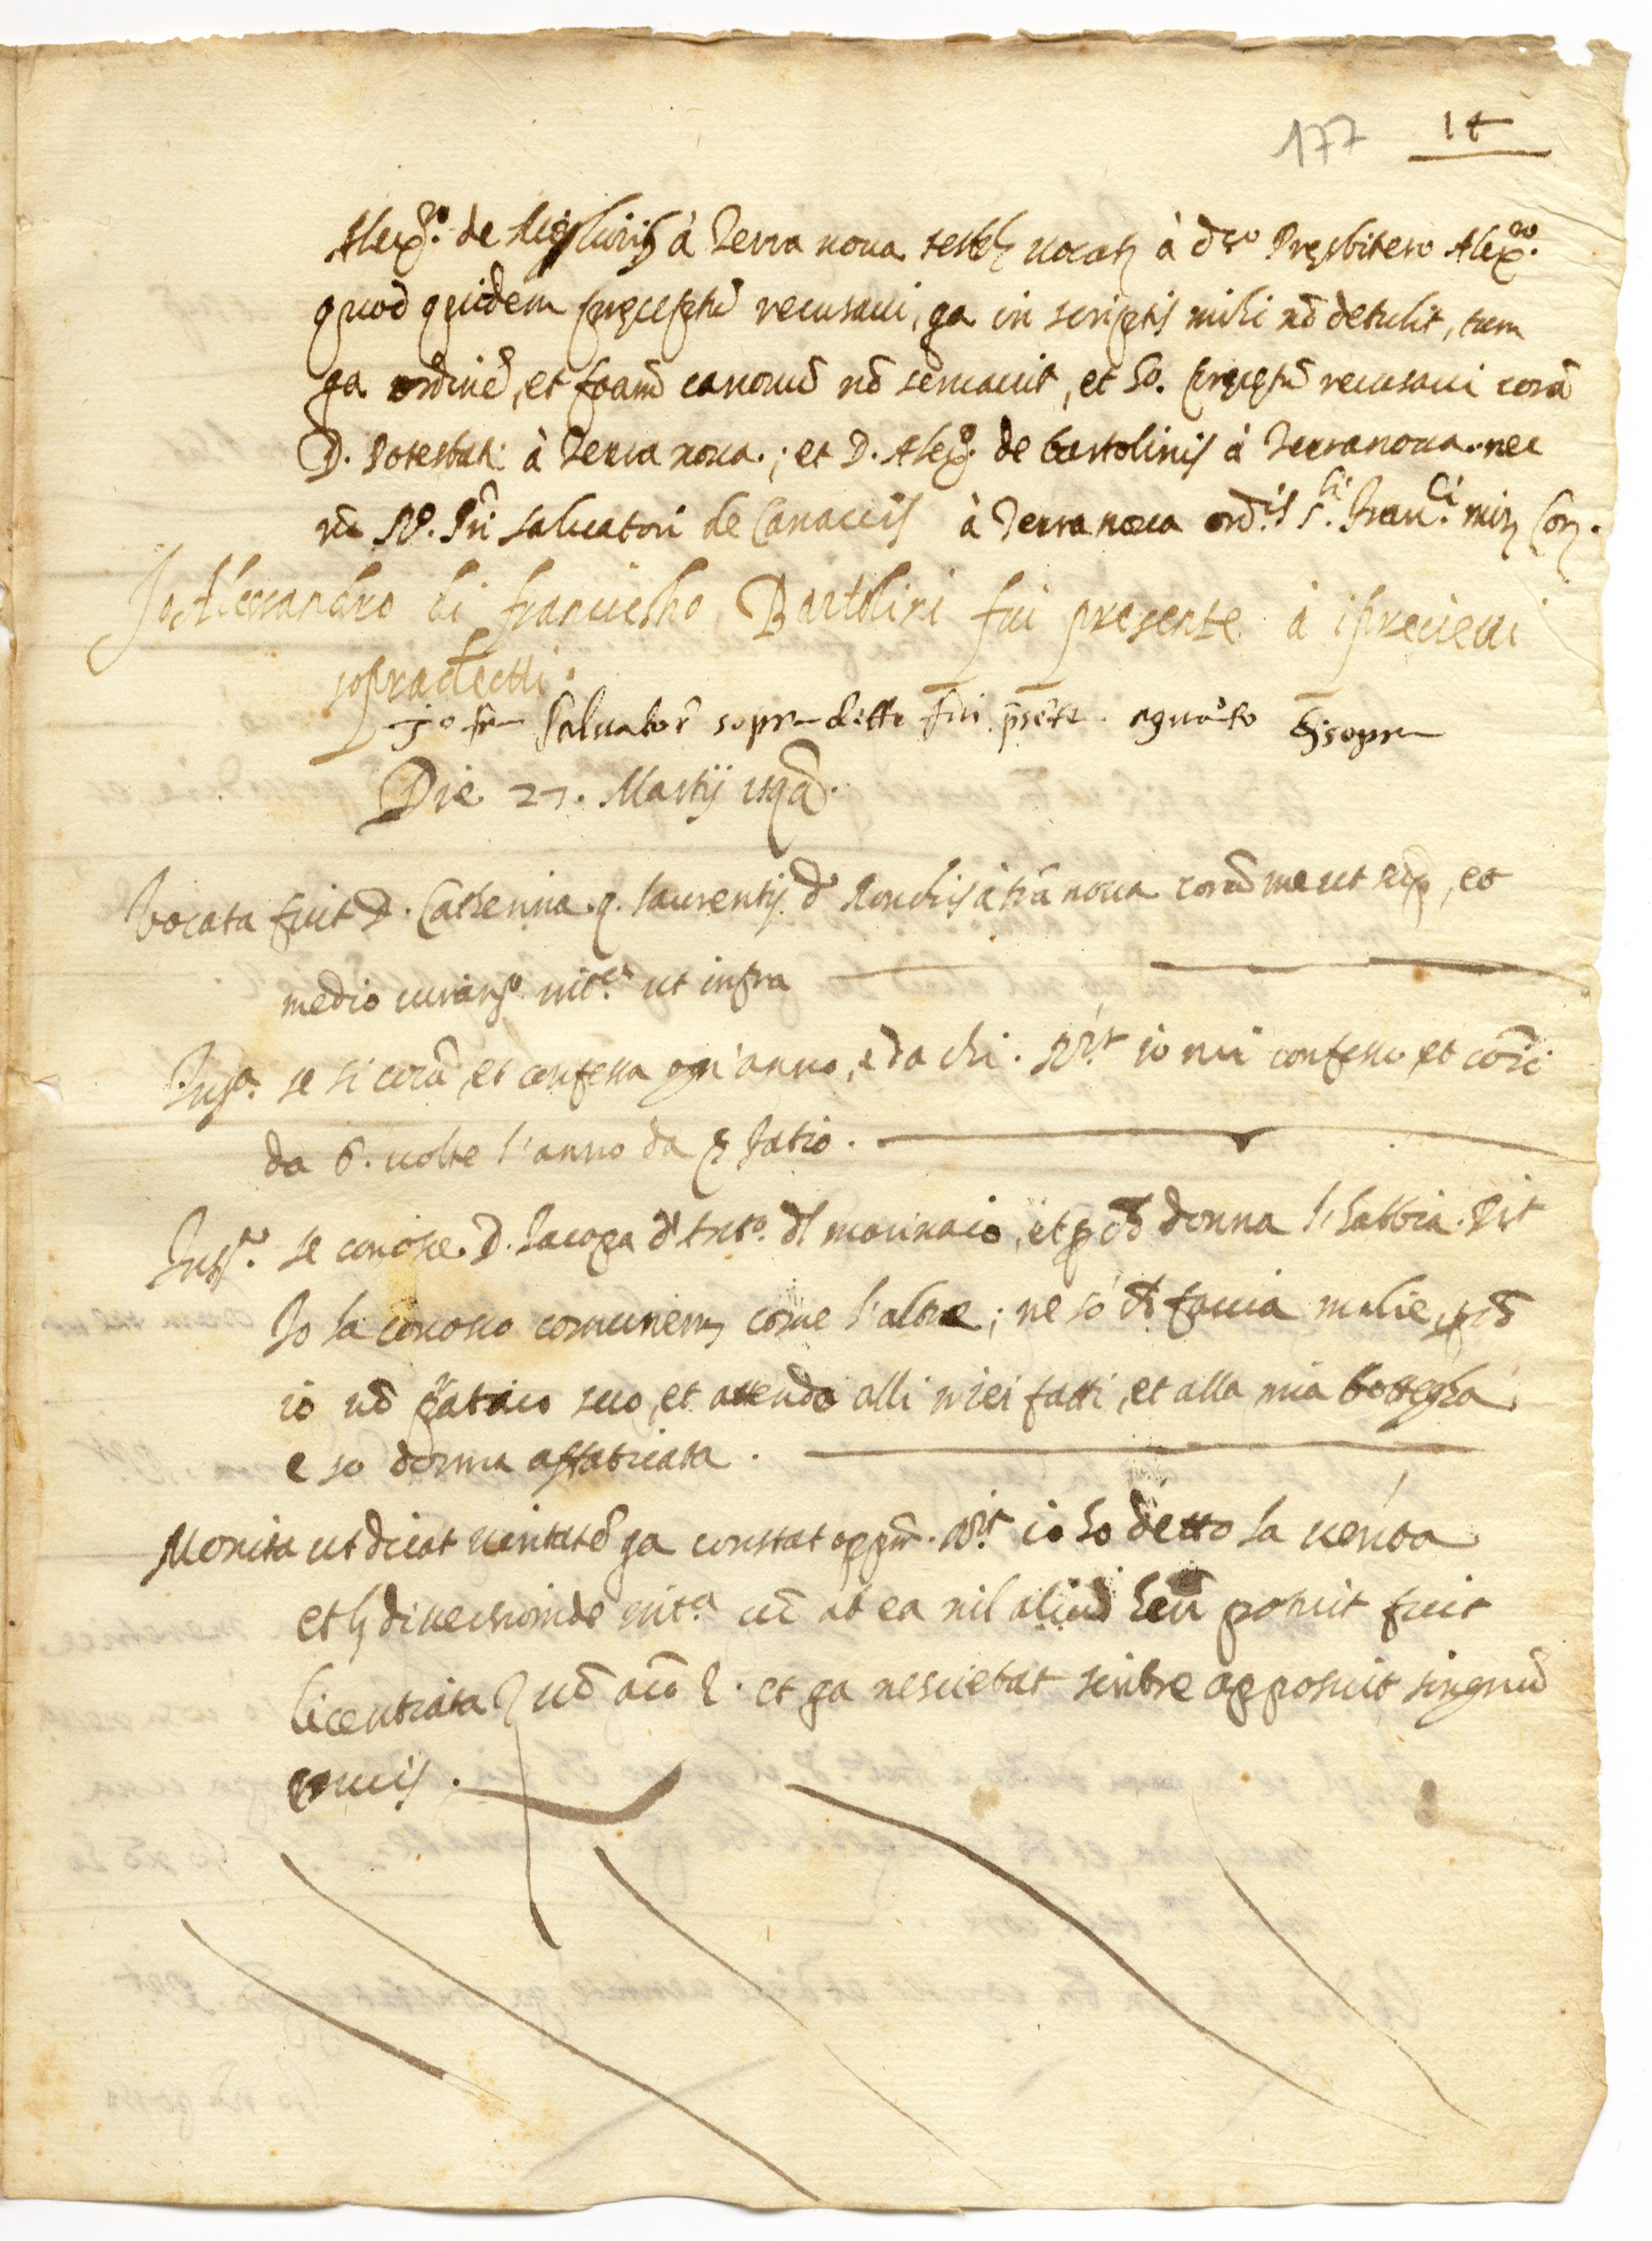 177 14
Alexº. de Migliorijs à Terra noua testes uocatj à dcto Presbitero Alexro.
quod quidem preceptũ recusaui, qa in scriptis mihi nõ detulit, tum
qa ordinẽ, et foamã canonũ nõ seruauit, et ho. preceptũ recusaui corã
D. Potestati à Terra noua.; et D. Alexº. de bartolinis à Terranoua. nec
nõ Rº. Pri saluatori de Canaccis à Terra noua ordis. s.ti Franci. min Con.
Jo Alessandro di franciescho Bartolini fui presente à i precietti
sopradetti.
Jo fr Saluator sopra ditto fui psẽte. a quãto di sopra
Die 27. Martij 1594.
Vocata fuit D. Catherina q. laurentij de Ronchis à trã noua corã me ut supª, et
medio iuranto. intta. ut infra
Intª. se si cõca, et confessa ogn'anno, e da chi. Rit io mi confesso, et cõico
da 6. uolte l'anno da P Fatio.
Intª. se conosce. D. Jacopa di Frco. dl mocinaio, et p chẽ donna l'habbia. Rit
Jo la conosco comunemte come l'altre; ne sò ch faccia malie, pchẽ
io nõ pratico seco, et attendo alli miei fatti, et alla mia bottegha
e so donna affaticata.
Monita ut dicat ueritatẽ qa constat oppm. Rit. io ho detto la uerita
et diuersimode intta cũ ab ea nil aliud hẽri potuit fuit
licentiata et qa nesciebat scribre apposuit singnũ
crucis.